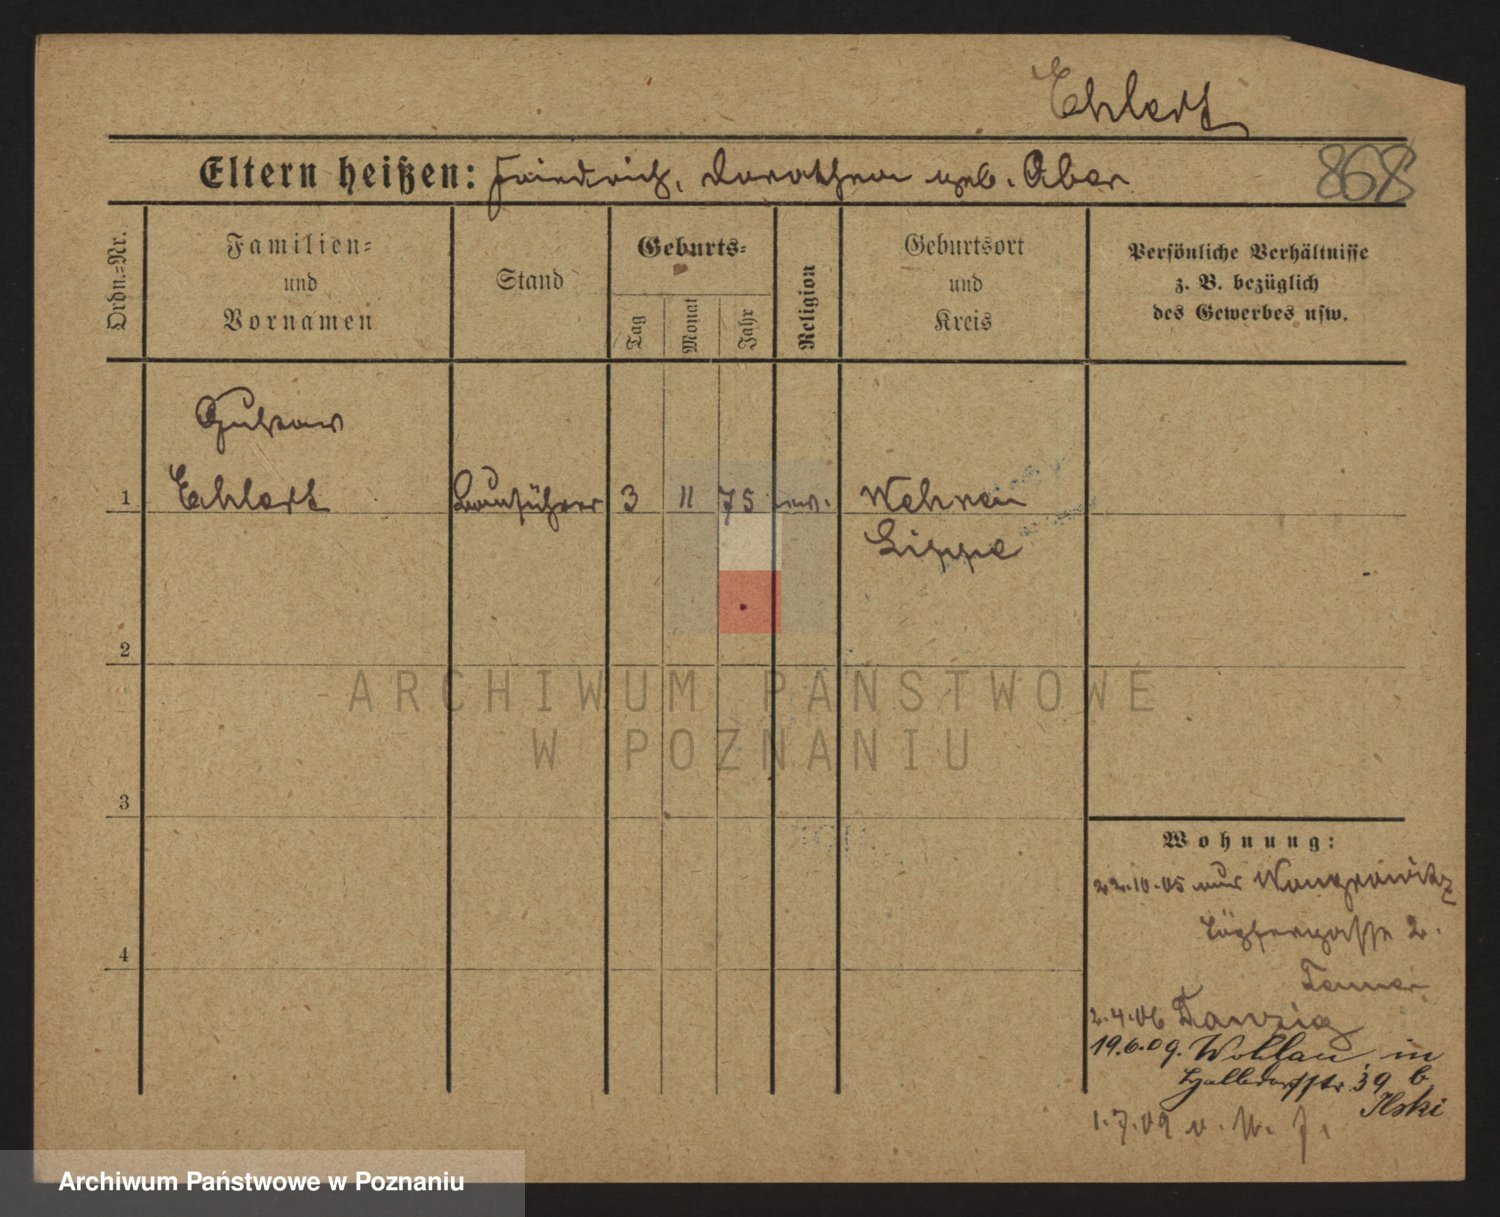 Ehlert
868
Eltern heißen: Friedrich, Dorothea geb. Aber
Ordn.-Nr.
Familien-
und
Vornamen
Stand
Geburts-
Tag
Monat
Jahr
Religion
Geburtsort
und
Kreis
Persönliche Verhältnisse
z. B. bezüglich
des Gewerbes usw.
Gustav
1 Ehlert Bauführer 3 11 75 ev. Wehren
Lippe
2
ARCHIWUM PAŃSTWOWE
W POZNANIU
3
Wohnung:
4
22.10.05 aus Wongrowitz
Töpfergasse 2.
2.4.06 Danzig
19.6.09. Wohlau in
Halldorfstr. 39 b
Ilski
1.7.09
Archiwum Państwowe w Poznaniu